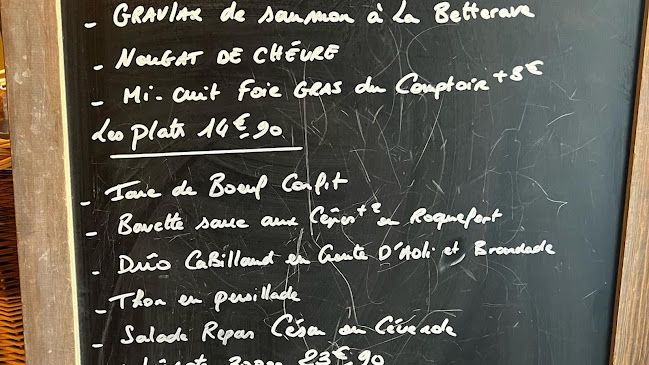 - GRAVLAX de saumon à La Betterave
- NOUGAT DE CHÉVRE
- Mi-cuit Foie GRAS du Comptoir +8€
Les plats 14€90
- Joue de Boeuf Confit
- Bavette sauce aux Cèpes +2 ou Roquefort
- Duo CaBillaud en Croute D'Aoli et Brandade
- Thon en persillade
- Salade Repas César ou Cévenole
300gr 23€90